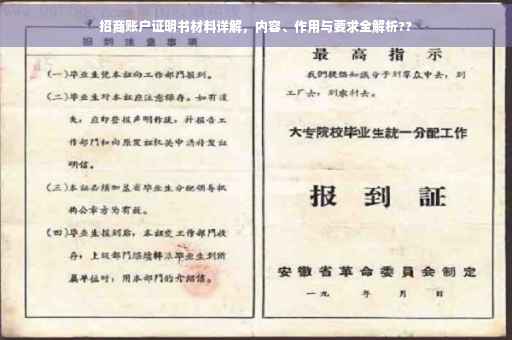 招商账户证明书材料详解，内容、作用与要求全解析??
报到注意事项
(一)毕业生凭本证向工作部门报到。
(二)毕业生对本证应注意保存。如有遗
失，应即登报声明作废，并报告工
作部门和向原发证机关申请补发证
明信。
(三)本证必须加盖省毕业生分配领导机
构公章方为有效。
(四)毕业生报到后，本证交工作部门收
存；上级部门继续转派毕业生到所
属单位时，用本部门的介绍信。
最高指示
我们提倡知识分子到群众中去，到
工厂去，到农村去。
大专院校毕业生统一分配工作
报到证
安徽省革命委员会制定
一九 年 月 日